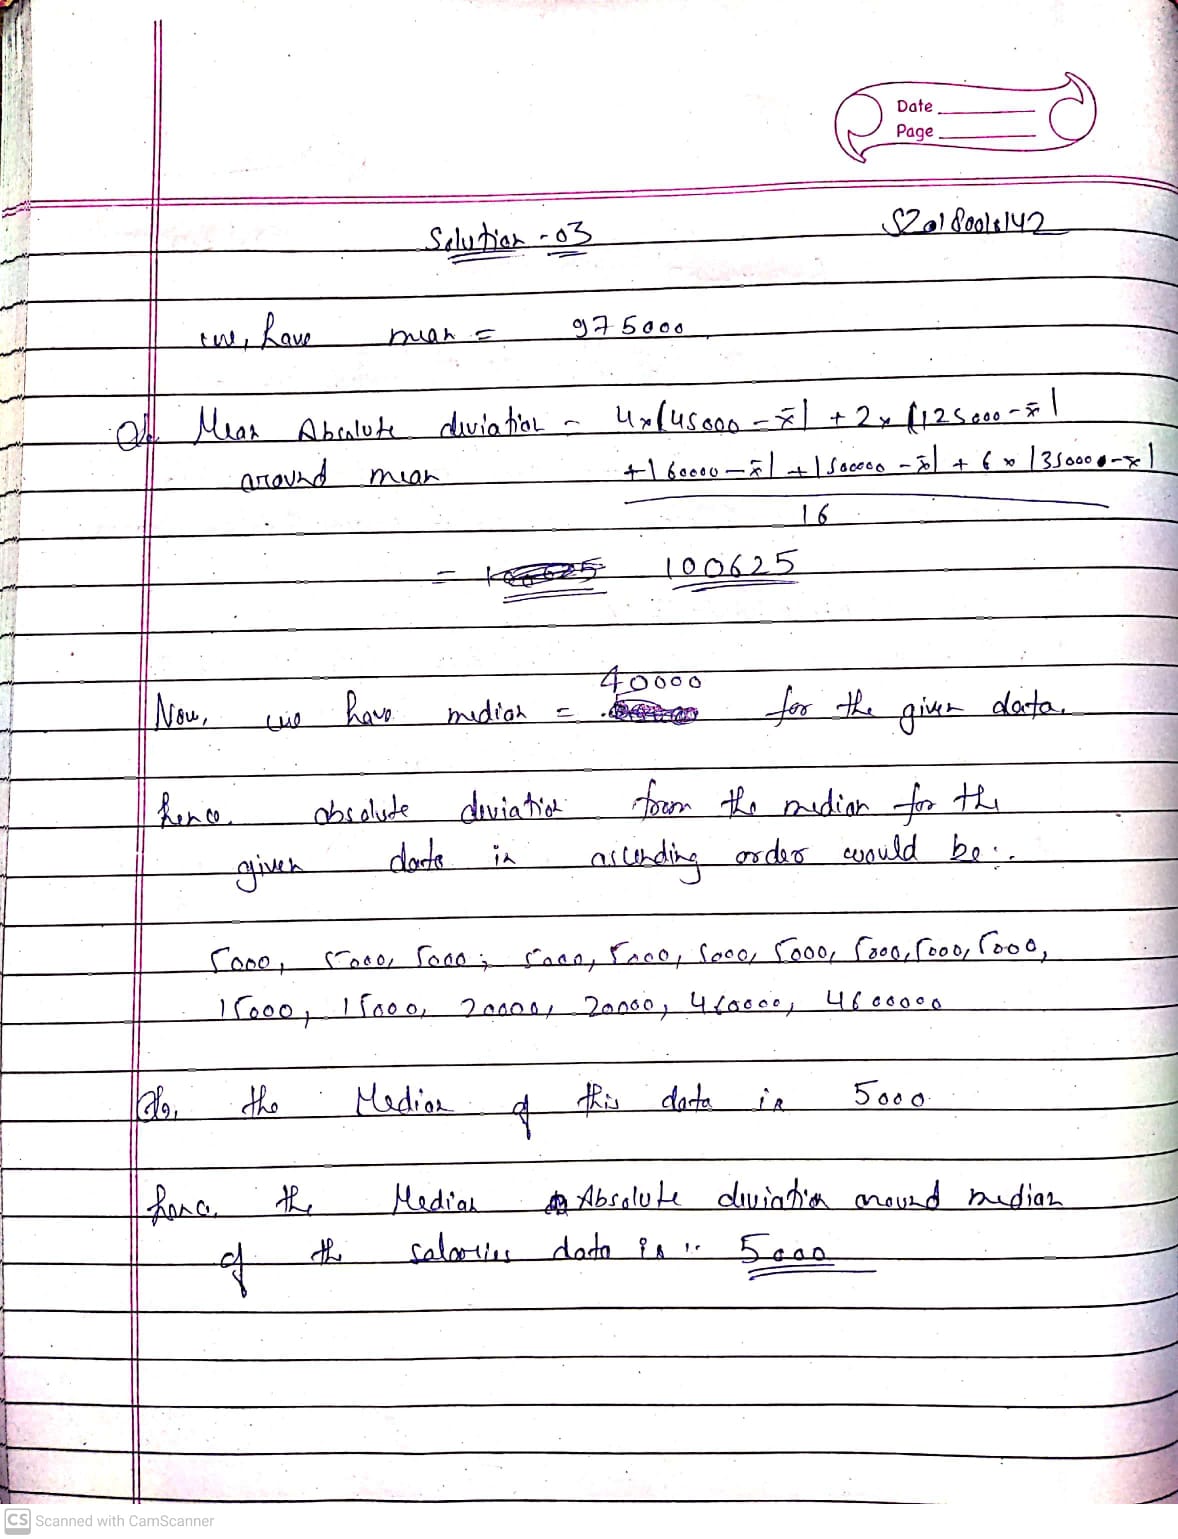 Date
Page
Solution - 03
S20180010142
we, have mean = 975000
Mean Absolute deviation = 4x|45000 - x̄| + 2x|125000 - x̄|
around mean +|60000 - x̄| + |500000 - x̄| + 6x|35000 - x̄|
16
= 100625
40000
Now, we have median = for the given data.
hence. absolute deviation from the median for the
given data in ascending order would be :-
5000, 5000, 5000, 5000, 5000, 5000, 5000, 5000, 5000, 5000,
15000, 15000, 20000, 20000, 460000, 4600000
So, the Median of this data is 5000.
hence, the Median Absolute deviation around median
of the salaries data is :- 5000
CS Scanned with CamScanner